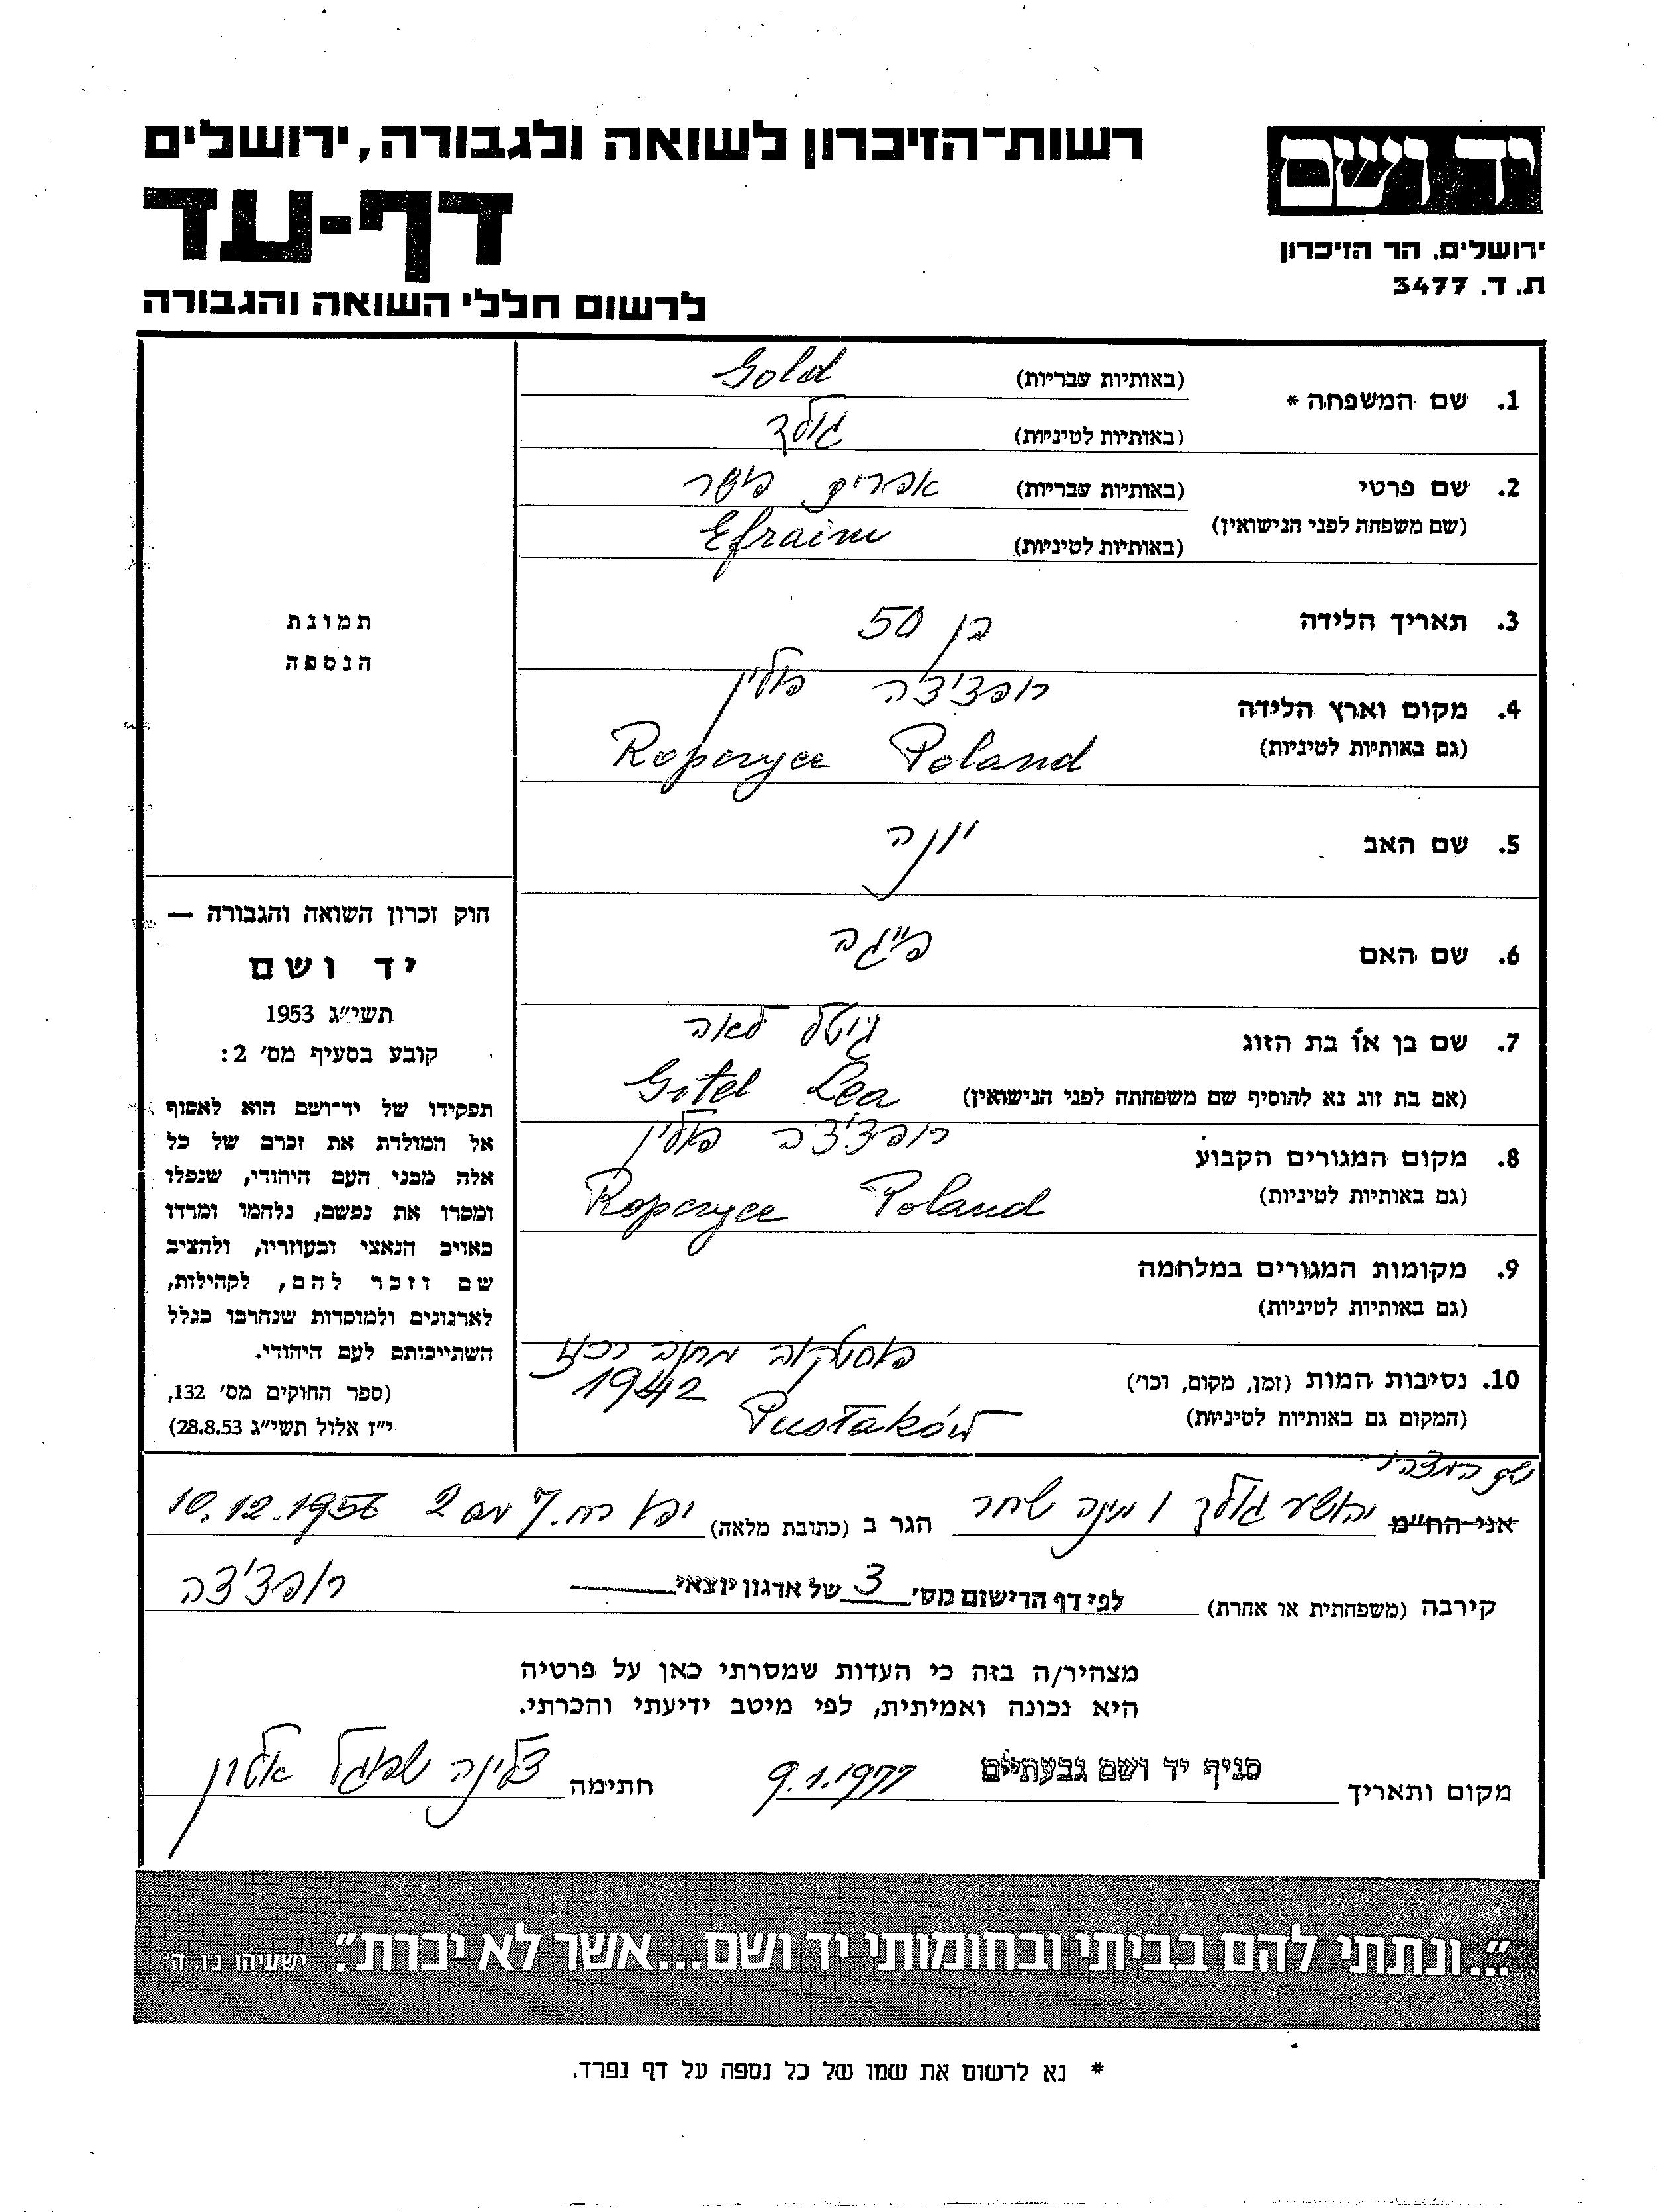 יד ושם
ירושלים, הר הזיכרון
ת. ד. 3477
רשות־הזיכרון לשואה ולגבורה, ירושלים
דף-עד
לרשום חללי השואה והגבורה
1. שם המשפחה * (באותיות עבריות) Gold
(באותיות לטיניות) גולד
2. שם פרטי (באותיות עבריות) אפרים פישר
(שם משפחה לפני הנישואין) (באותיות לטיניות) Efraim
3. תאריך הלידה בן 50
4. מקום וארץ הלידה רופצ'יצה פולין
(גם באותיות לטיניות) Ropczyce Poland
5. שם האב יונה
6. שם האם פייגה
7. שם בן או בת הזוג גיטל לאה
(אם בת זוג נא להוסיף שם משפחתה לפני הנישואין) Gitel Lea
8. מקום המגורים הקבוע רופצ'יצה פולין
(גם באותיות לטיניות) Ropczyce Poland
9. מקומות המגורים במלחמה
(גם באותיות לטיניות)
10. נסיבות המות (זמן, מקום, וכו') פוסטקוב מחנה רכוז
1942
(המקום גם באותיות לטיניות) Pustaków
תמונת
הנספה
חוק זכרון השואה והגבורה —
יד ושם
תשי"ג 1953
קובע בסעיף מס' 2:
תפקידו של יד־ושם הוא לאסוף
אל המולדת את זכרם של כל
אלה מבני העם היהודי, שנפלו
ומסרו את נפשם, נלחמו ומרדו
באויב הנאצי ובעוזריו, ולהציב
שם וזכר להם, לקהילות,
לארגונים ולמוסדות שנחרבו בגלל
השתייכותם לעם היהודי.
(ספר החוקים מס' 132,
י"ז אלול תשי"ג 28.8.53)
שם המצהיר
אני הח"מ יהושע גולד ו מינה שחר הגר ב (כתובת מלאה) יפו רח. 7 מס 2 10.12.1956
קירבה (משפחתית או אחרת) לפי דף הרישום מס' 3 של ארגון יוצאי רופצ'יצה
מצהיר/ה בזה כי העדות שמסרתי כאן על פרטיה
היא נכונה ואמיתית, לפי מיטב ידיעתי והכרתי.
מקום ותאריך סניף יד ושם גבעתיים 9.1.1977 חתימה צלינה שפיגל אלון
"...ונתתי להם בביתי ובחומותי יד ושם...אשר לא יכרת". ישעיהו נ"ו, ה'
* נא לרשום את שמו של כל נספה על דף נפרד.